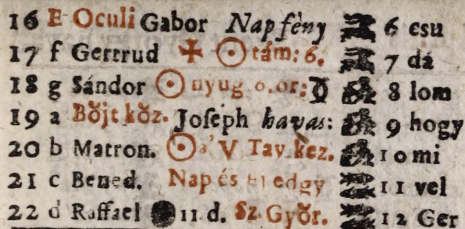 16 E Oculi Gabor Nap fèny 6 esu
17 f Gertrud tám: 6. 7 dá
18 g Sándor nyug 6. or: 8 lom
19 a Bőjt kőz. Joseph havas: 9 hogy
20 b Matron. V Tav. kez. 10 mi
21 c Bened. Nap és edgy 11 vel
22 d Raffael 11 d. Sz Győr. 12 Ger